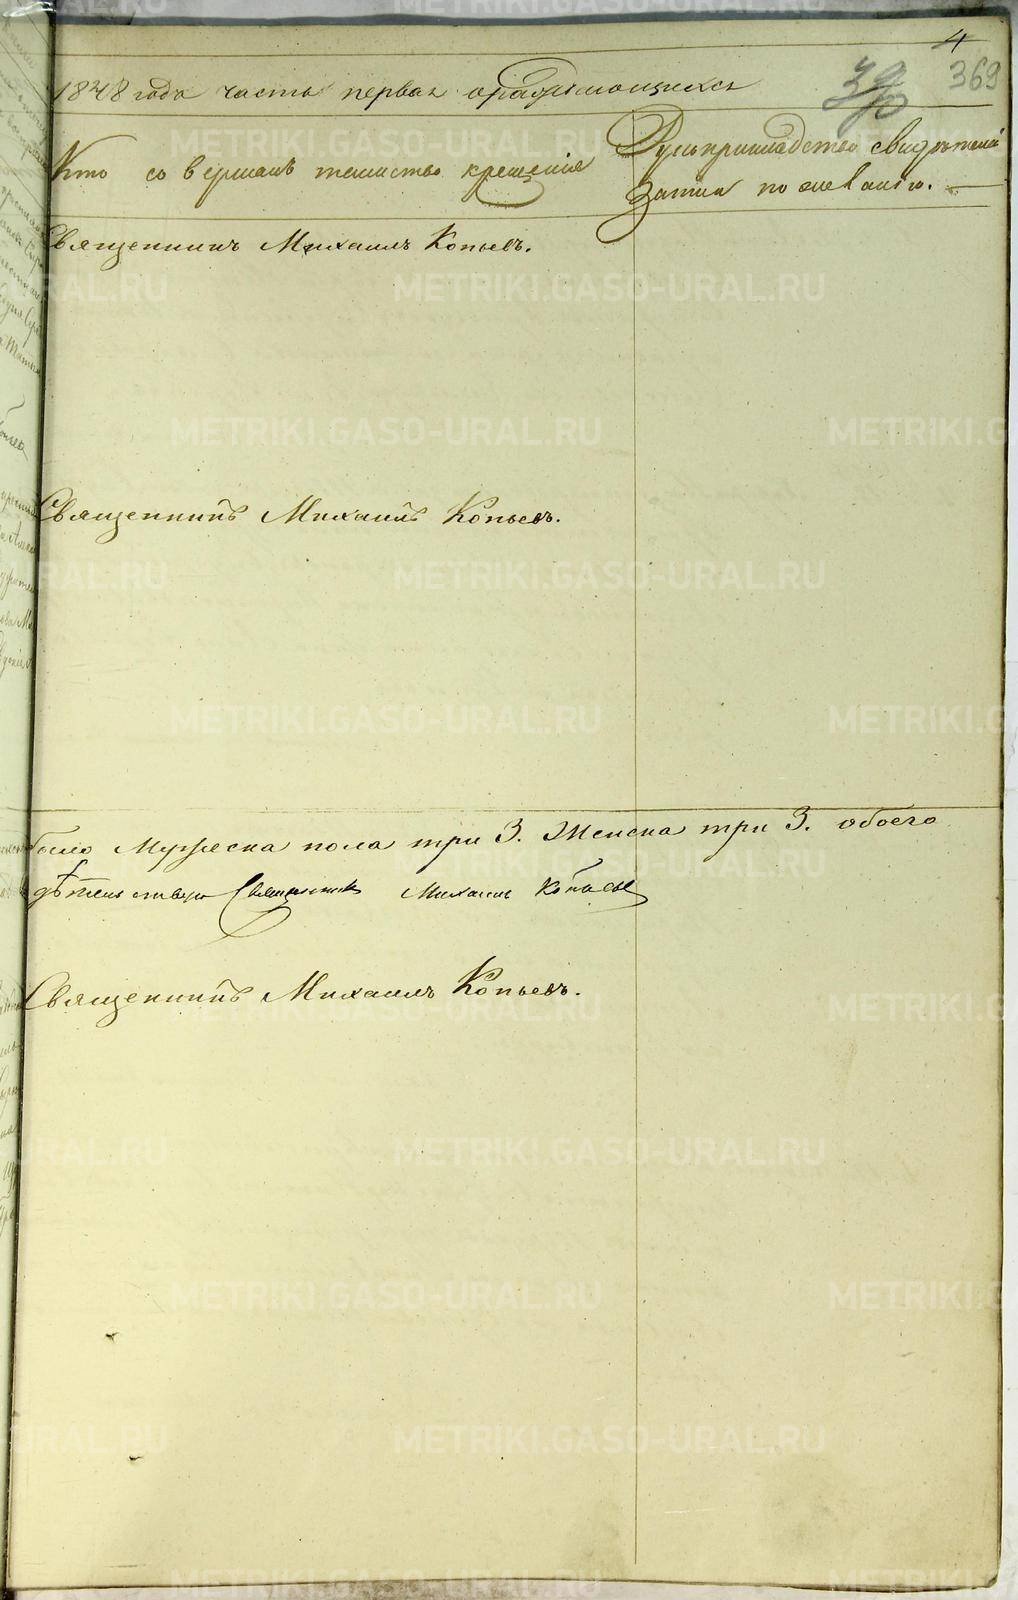 4
369
1848 года часть первая о раждающихся
Кто совершалъ таинство крещенія
Рукоприкладство свидѣтелей
записи по желанію.
Священникъ Михаилъ Копьевъ.
Священникъ Михаилъ Копьевъ.
было Мужеска пола три 3. Женска три 3. обоего
Священникъ Михаилъ Копьевъ
Священникъ Михаилъ Копьевъ.
METRIKI.GASO-URAL.RU